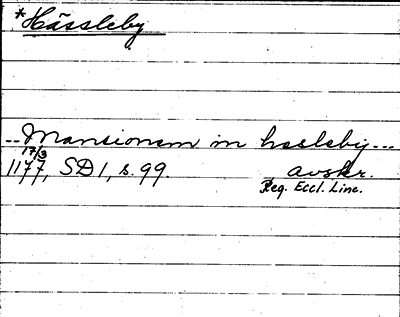 *Hässleby
..Mansionem in hasleby...
17/3
1177, SD 1, s. 99. avskr.
Reg. Eccl. Linc.